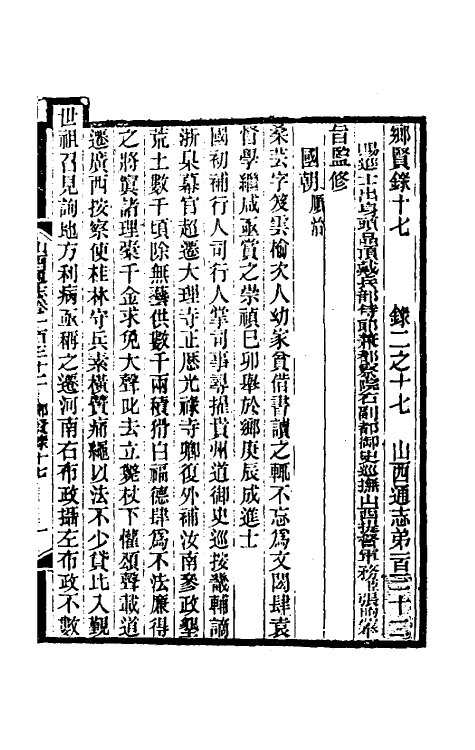 鄉賢錄十七　錄二之十七　山西通志第一百三十三
賜進士出身頭品頂戴兵部侍郎兼都察院右副都御史巡撫山西提督軍務臣張煦奉
旨監修
國朝順治
桑芸字芟雲榆次人幼家貧借書讀之輒不忘爲文閎肆袁
督學繼咸亟賞之崇禎己卯舉於鄉庚辰成進士
國初補行人司行人掌司事尋擢貴州道御史巡按畿輔謫
浙臬幕官超遷大理寺正歷光祿寺卿復外補汝南參政墾
荒土數千頃除無藝供數千兩積猾白福德肆爲不法廉得
之將寘諸理橐千金求免大聲叱去立斃杖下懽頌聲載道
遷廣西按察使桂林守兵素橫賛痛繩以法不少貸比入覲
世祖召見詢地方利病亟稱之遷河南右布政攝左布政不數
山西通志卷一百三十三　鄉賢錄十七